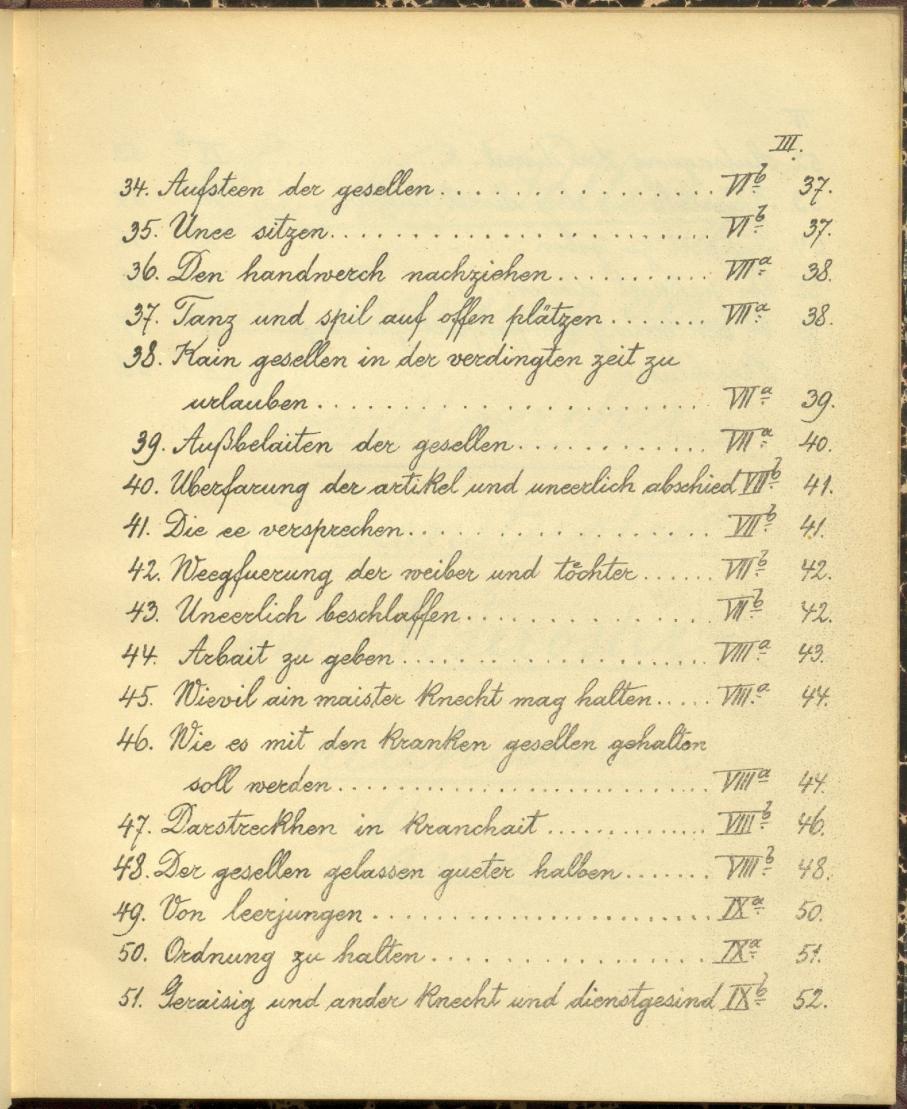 III.
34. Aufsteen der gesellen. . . . . . . . . . . . . . . . . . VI b 37.
35. Unee sitzen. . . . . . . . . . . . . . . . . . . . . . . . VI b 37.
36. Den handwerch nachziehen . . . . . . . . . . . VII a 38.
37. Tanz und spil auf offen plätzen . . . . . . . VII a 38.
38. Kain gesellen in der verdingten zeit zu
urlauben . . . . . . . . . . . . . . . . . . . . . . . . . VII a 39.
39. Außbelaiten der gesellen . . . . . . . . . . . . . VII a 40.
40. Uberfarung der artikel und uneerlich abschied VII b 41.
41. Die ee versprechen . . . . . . . . . . . . . . . . . . . VII b 41.
42. Weegfuerung der weiber und töchter . . . . . . VII b 42.
43. Uneerlich beschlaffen . . . . . . . . . . . . . . . . VII b 42.
44. Arbait zu geben . . . . . . . . . . . . . . . . . . . . VIII a 43.
45. Wievil ain maister knecht mag halten . . . . . VIII. a 44.
46. Wie es mit den kranken gesellen gehalten
soll werden . . . . . . . . . . . . . . . . . . . . . . . . VIII a 44.
47. Darstreckhen in kranchait . . . . . . . . . . . . . VIII b 46.
48. Der gesellen gelassen gueter halben . . . . . . . VIII b 48.
49. Von leerjungen . . . . . . . . . . . . . . . . . . . . . . IX a 50.
50. Ordnung zu halten . . . . . . . . . . . . . . . . . . IX a 51.
51. Geraisig und ander knecht und dienstgesind IX b 52.